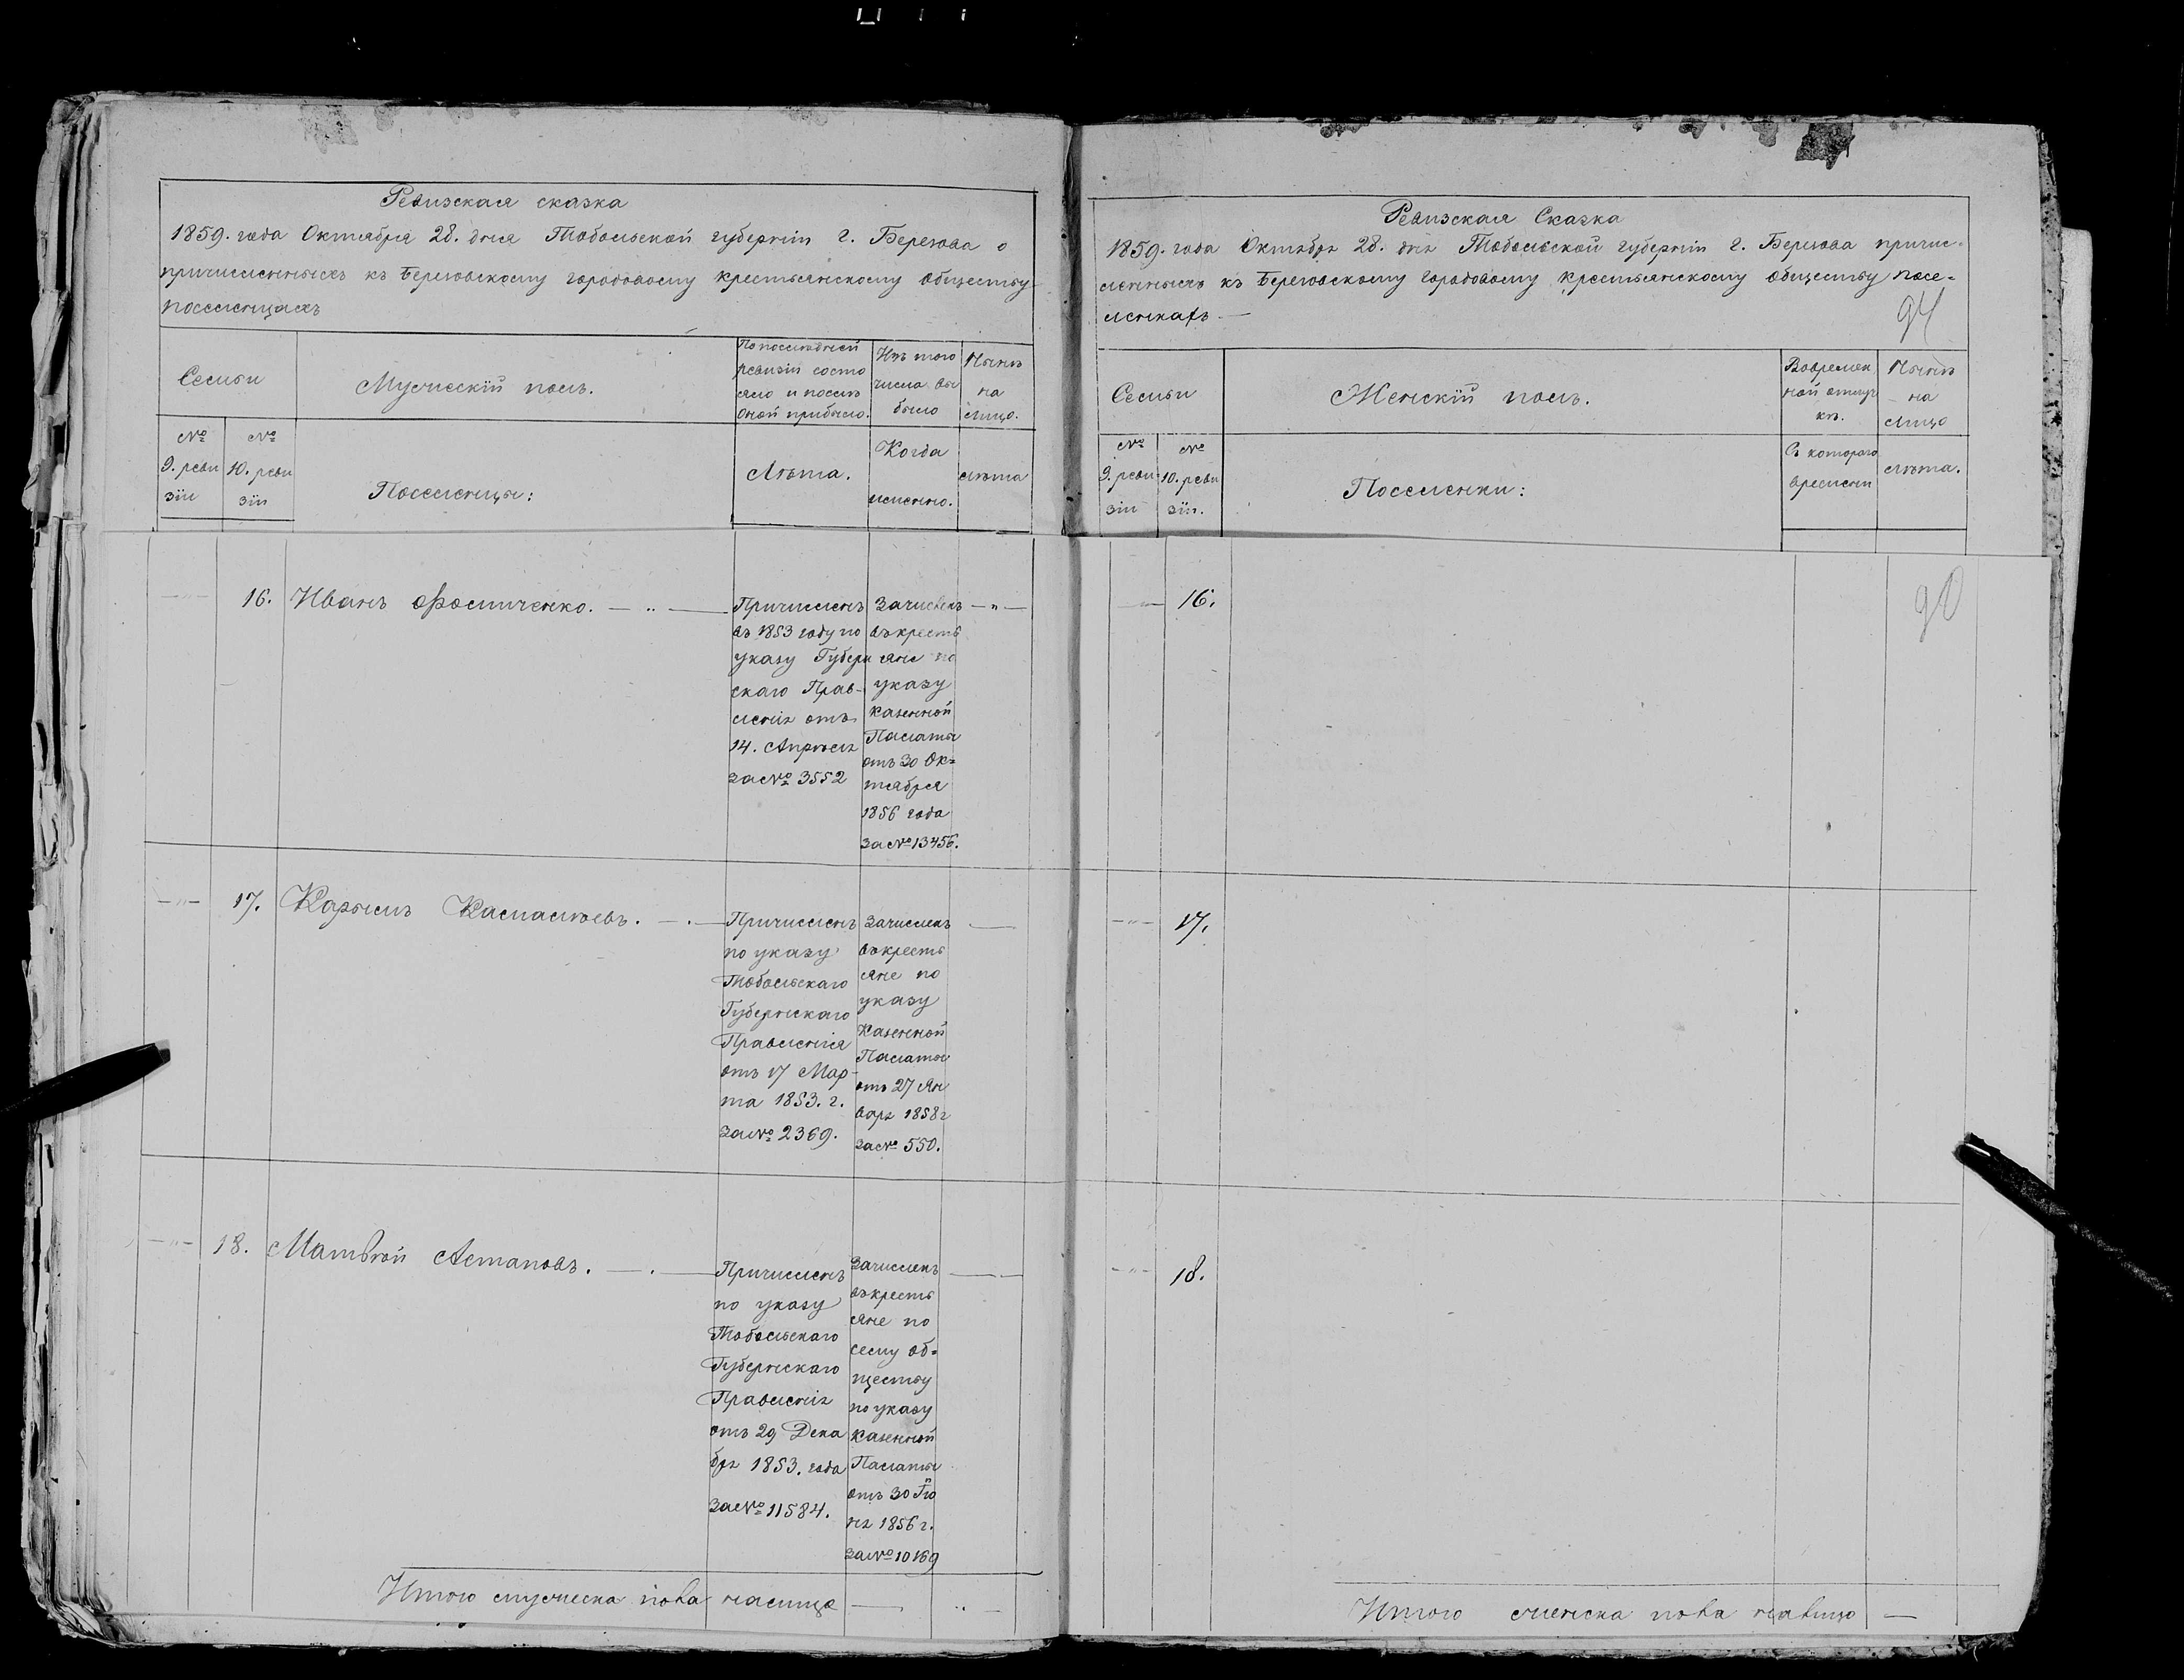 Ревизская сказка
1859. года Октября 28. дня Тобольской губерніи г. Березова о
причисленныхъ къ Березовскому городовому крестьянскому обществу
поселенцахъ
Семьи
Мужескій полъ.
По последней
ревизіи состо
яло и после
оной прибыло.
Изъ того
числа вы
было
Нынѣ
на
лицо.
№
9. реви
зіи
№
10. реви
зіи
Поселенцы:
Лѣта.
Когда
именно.
лѣта
16. Иванъ Фомиченко.
Причисленъ
въ 1853 году по
указу Губерн
скаго Прав-
ленія отъ
14. Апрѣля
за № 3552
Зачисленъ
въ кресть
яне по
указу
Казенной
Палаты
отъ 30 Ок=
тября
1856 года
за № 13456.
17. Карымъ Камалѣевъ.
Причисленъ
по указу
Тобольскаго
Губернскаго
Правленія
отъ 17 Мар-
та 1853. г.
за № 2369.
Зачисленъ
въ кресть
яне по
указу
Казенной
Палаты
отъ 27 Ян
варя 1858 г
за № 550.
18. Матвѣй Астаповъ.
Причисленъ
по указу
Тобольскаго
Губернскаго
Правленія
отъ 29 Дека
бря 1853. года
за № 11584.
Зачисленъ
въ кресть
яне по
сему об=
ществу
по указу
Казенной
Палаты
отъ 30 Ію
ня 1856 г.
за № 10169
Итого мужеска пола налицо
Ревизская Сказка
1859. года Октября 28. дня Тобольской губерніи г. Березова причис-
ленныхъ къ Березовскому городовому крестьянскому обществу посе=
ленкахъ
94
Семьи
Женскій полъ.
Во времен
ной отлуч
кѣ.
Нынѣ
на
лицо
№
9. реви
зіи
№
10. реви
зіи.
Поселенки:
Съ котораго
времени
лѣта.
16.
90
17.
18.
Итого женска пола налицо